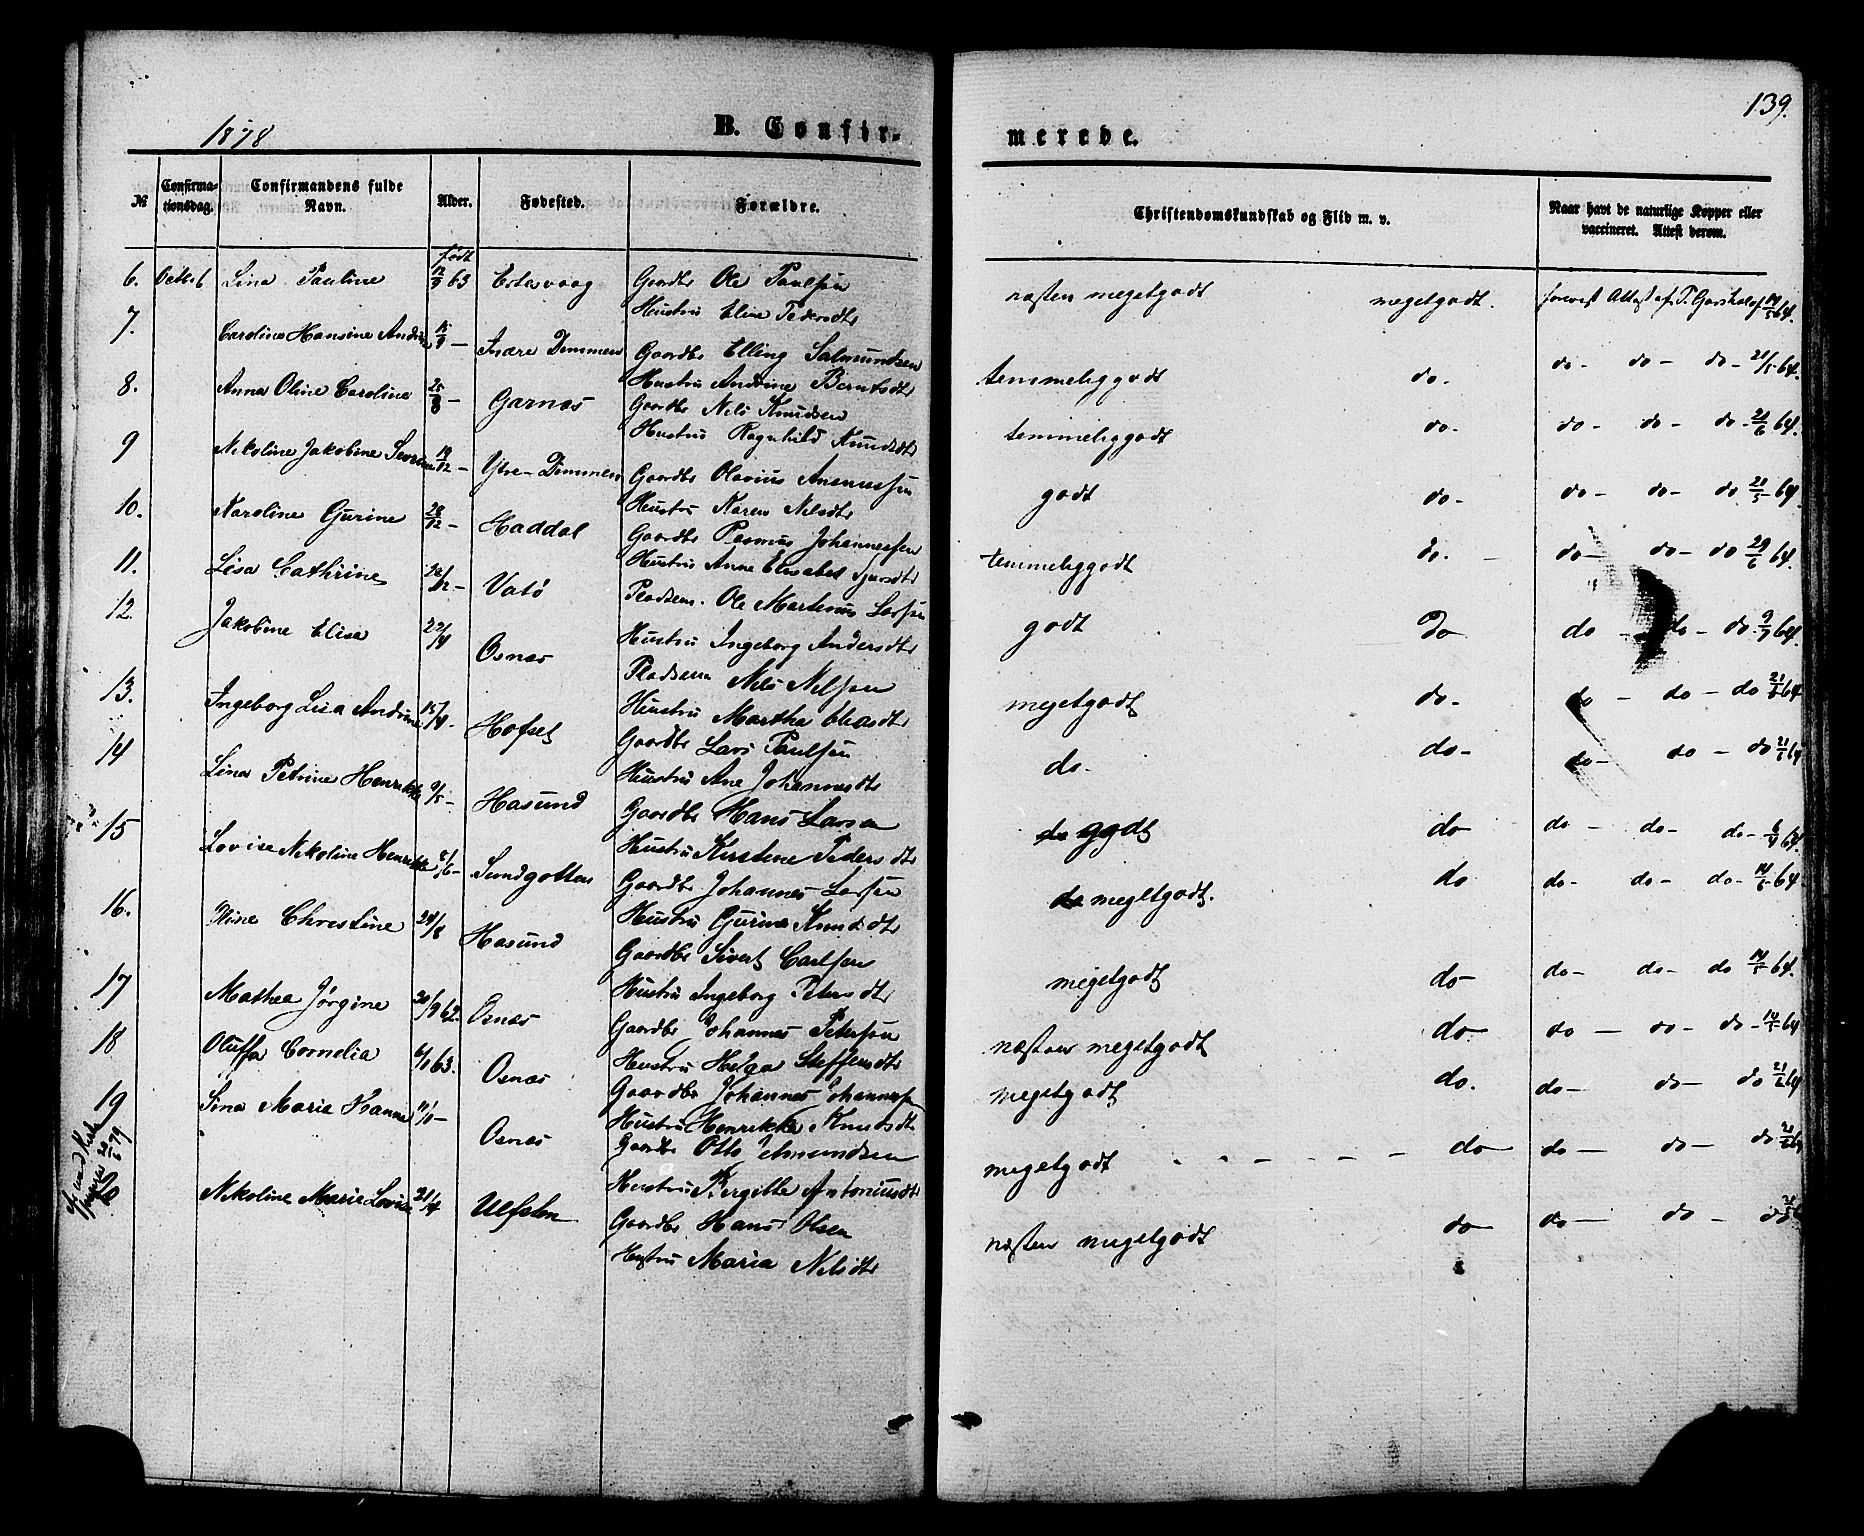 1878
B. Confir-
merede.
139.
№
Confirmationsdag.
Confirmandens fulde Navn.
Alder.
Fødested.
Forældre.
Christendomskundskab og Flid m. v.
Naar havt de naturlige Kopper eller vaccineret. Attest derom.
født
6. Octbr 6 Lina Pauline 12/5 63 Ertesvaag Gaardbr Ole Paulsen
Hustru Eline Pedersdtr
næsten megetgodt megetgodt. forevist Attest af P. Garshol af 19/5 64.
7. Caroline Hansine Andrine 15/9 — Indre Dimmen Gaardbr Elling Salmundsen
Hustru Andrine Berntsdtr
temmeliggodt do. do - do - do - 21/5 64.
8. Anna Oline Caroline 25/8 — Garnæs Gaardbr Nils Knudsen
Hustru Ragnhild Knudsdtr
temmeliggodt do - do - do - do - 21/6 64.
9 Nikoline Jakobine Severine 19/12 — Ytre-Dimmen Gaardbr Olavius Asmussen
Hustru Karen Nilsdtr
godt do - do - do - do 21/5 64.
10. Karoline Gurine 28/12 — Haddal Gaardbr Rasmus Johannessen
Hustru Anne Elisabet Sjursdtr
temmeliggodt do. do - do - do 29/6 64.
11. Lisa Cathrine 26/12 — Vatö Pladsem. Ole Martinus Larsen
Hustru Ingeborg Andersdtr
godt Do do - do - do. 9/7 64.
12. Jakobine Elisa 22/4 Osnæs Pladsem Nils Nilsen
Hustru Martha Eliasdtr
megetgodt do - do - do - do 21/6 64
13. Ingeborg Lisa Andrine 15/4 - Hofset Gaardbr Lars Paulsen
Hustru Ane Johannesdtr
do. do - do - do - do 21/6 64
14 Lina Petrine Henrikke 9/5 - Hasund Gaardbr Hans Larsen
Hustru Kirstine Pedersdtr
do godt do do - do - do - 6/7 64.
15 Lovise Nikoline Henrikke 8/6 - Sundgotten Gaardbr Johannes Larsen
Hustru Gurine Knudsdtr
do megetgodt. do do - do - do - 14/5 64
16. Stine Christine 28/8 Hasund Gaardbr Sivert Carlsen
Hustru Ingeborg Petersdtr
megetgodt do do - do - do 14/5 64.
17 Mathea Jørgine 20/9 62. Osnæs Gaardbr Johannes Petersen
Hustru Helga Steffensdtr
næsten megetgodt do do - do - do - 14/5 64
18 Oluffa Cornelia 6/10 63. Osnæs Gaardbr Johannes Johannessen
Hustru Henrikke Knudsdtr
megetgodt do. do - do - do 21/6 64
19 Sina Maria Hanna 11/10 - Osnæs Gaardbr Otto Edmundsen
Hustru Birgitte Antoniusdtr
megetgodt do do - do - do 21/6 64
Nikoline Marie Lovise 21/4 Ulfsten Gaardbr Hans Olsen
Hustru Maria Nilsdtr
næsten megetgodt do do - do - do